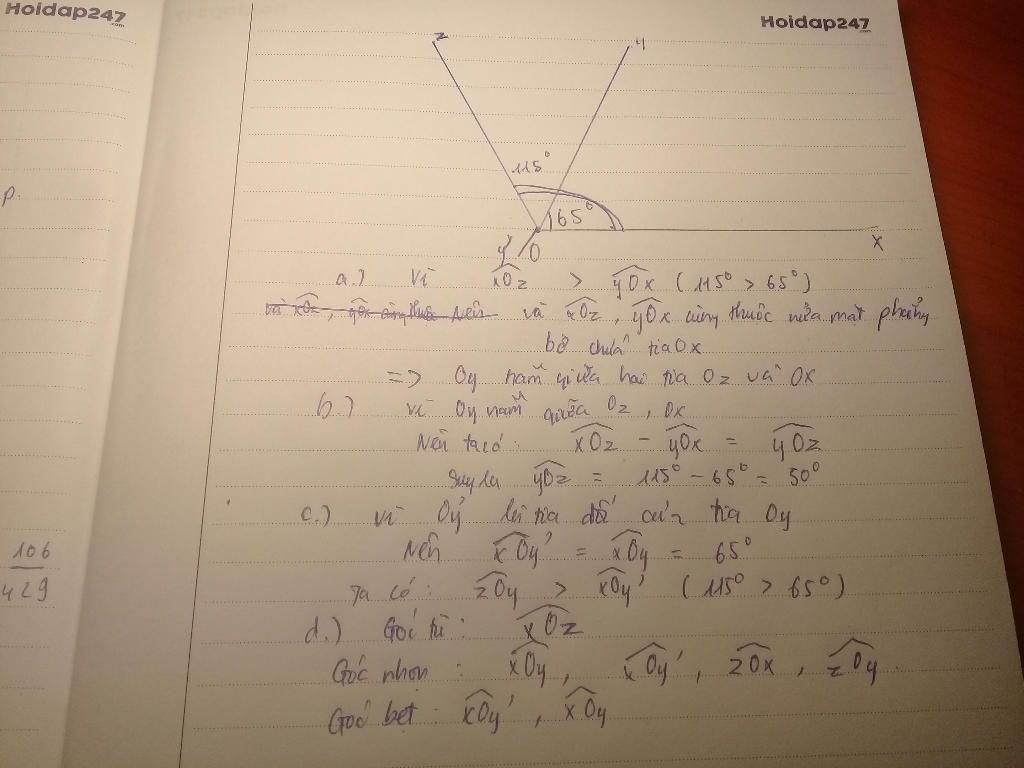 Hoidap247
.com
Hoidap247
.com
p.
106
429
z
y
115°
165°
y'
O
x
a.) Vì xOz > yOx (115° > 65°)
và xOz, yOx cùng thuộc Nên và xOz, yOx cùng thuộc nửa mặt phẳng
bờ chứa tia Ox
=> Oy nằm giữa hai tia Oz và Ox
b.) vì Oy nằm giữa Oz, Ox
Nên ta có: xOz - yOx = yOz
Suy ra yOz = 115° - 65° = 50°
c.) vì Oy' là tia đối của tia Oy
Nên xOy' = xOy = 65°
Ta có: zOy > xOy' (115° > 65°)
d.) Góc tù: xOz
Góc nhọn: xOy, xOy', zOx, zOy.
Góc bẹt: xOy', xOy